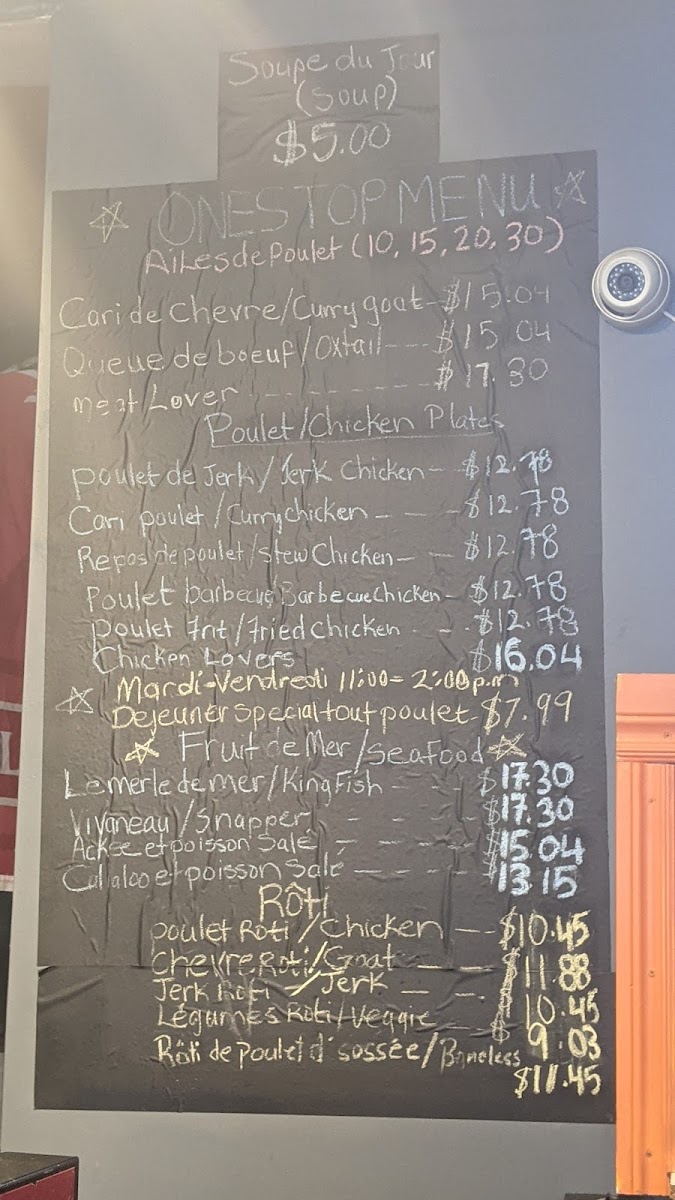 Soupe du Jour
(Soup)
$5.00
ONESTOP MENU
AiLes de Poulet (10, 15, 20, 30)
Cari de chevre/Curry goat - $15.04
Queue de boeuf/Oxtail --- $15 04
meat Lover - - - - - - - $17.30
Poulet/Chicken Plates
poulet de Jerk/Jerk Chicken - $12.78
Cari poulet/Curry chicken - - - $12.78
Repas de poulet/Stew Chicken - - $12.78
Poulet barbecue/Barbecue Chicken - $12.78
poulet frit/Fried Chicken - - $12.78
Chicken Lovers $16.04
Mardi-Vendredi 11:00 - 2:00 p.m
Dejeuner Special tout poulet - $7.99
Fruit de Mer/Seafood
Le merle de mer/King Fish - - $17.30
Vivaneau/Snapper - - $17.30
Ackee et poisson Sale - - - $15.04
Callaloo et poisson Salé - - - $13.15
Rôti
poulet Roti/Chicken - - $10.45
Chevre Roti/Goat - - $11.88
Jerk Roti - Jerk - - $10.45
Légumes Roti/Veggie - $9.03
Rôti de poulet d'sossée/Boneless
$11.45